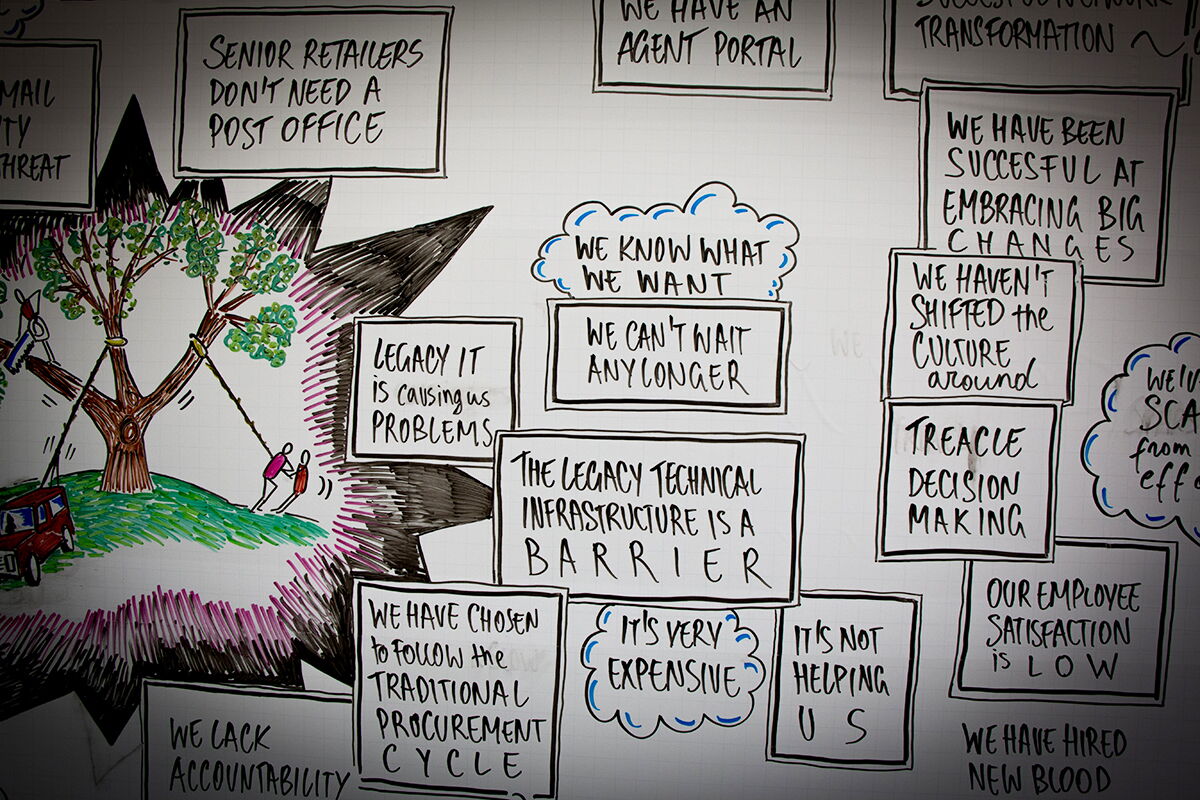 SENIOR RETAILERS
DON'T NEED A
POST OFFICE
WE HAVE AN
AGENT PORTAL
TRANSFORMATION
MAIL
THREAT
WE HAVE BEEN
SUCCESFUL AT
EMBRACING BIG
CHANGES
WE KNOW WHAT
WE WANT
WE CAN'T WAIT
ANY LONGER
WE HAVEN'T
SHIFTED the
CULTURE
around
LEGACY IT
is causing us
PROBLEMS
TREACLE
DECISION
MAKING
from
THE LEGACY TECHNICAL
INFRASTRUCTURE IS A
BARRIER
WE HAVE CHOSEN
to FOLLOW the
TRADITIONAL
PROCUREMENT
CYCLE
IT'S VERY
EXPENSIVE
IT'S NOT
HELPING
US
OUR EMPLOYEE
SATISFACTION
is LOW
WE LACK
ACCOUNTABILITY
WE HAVE HIRED
NEW BLOOD